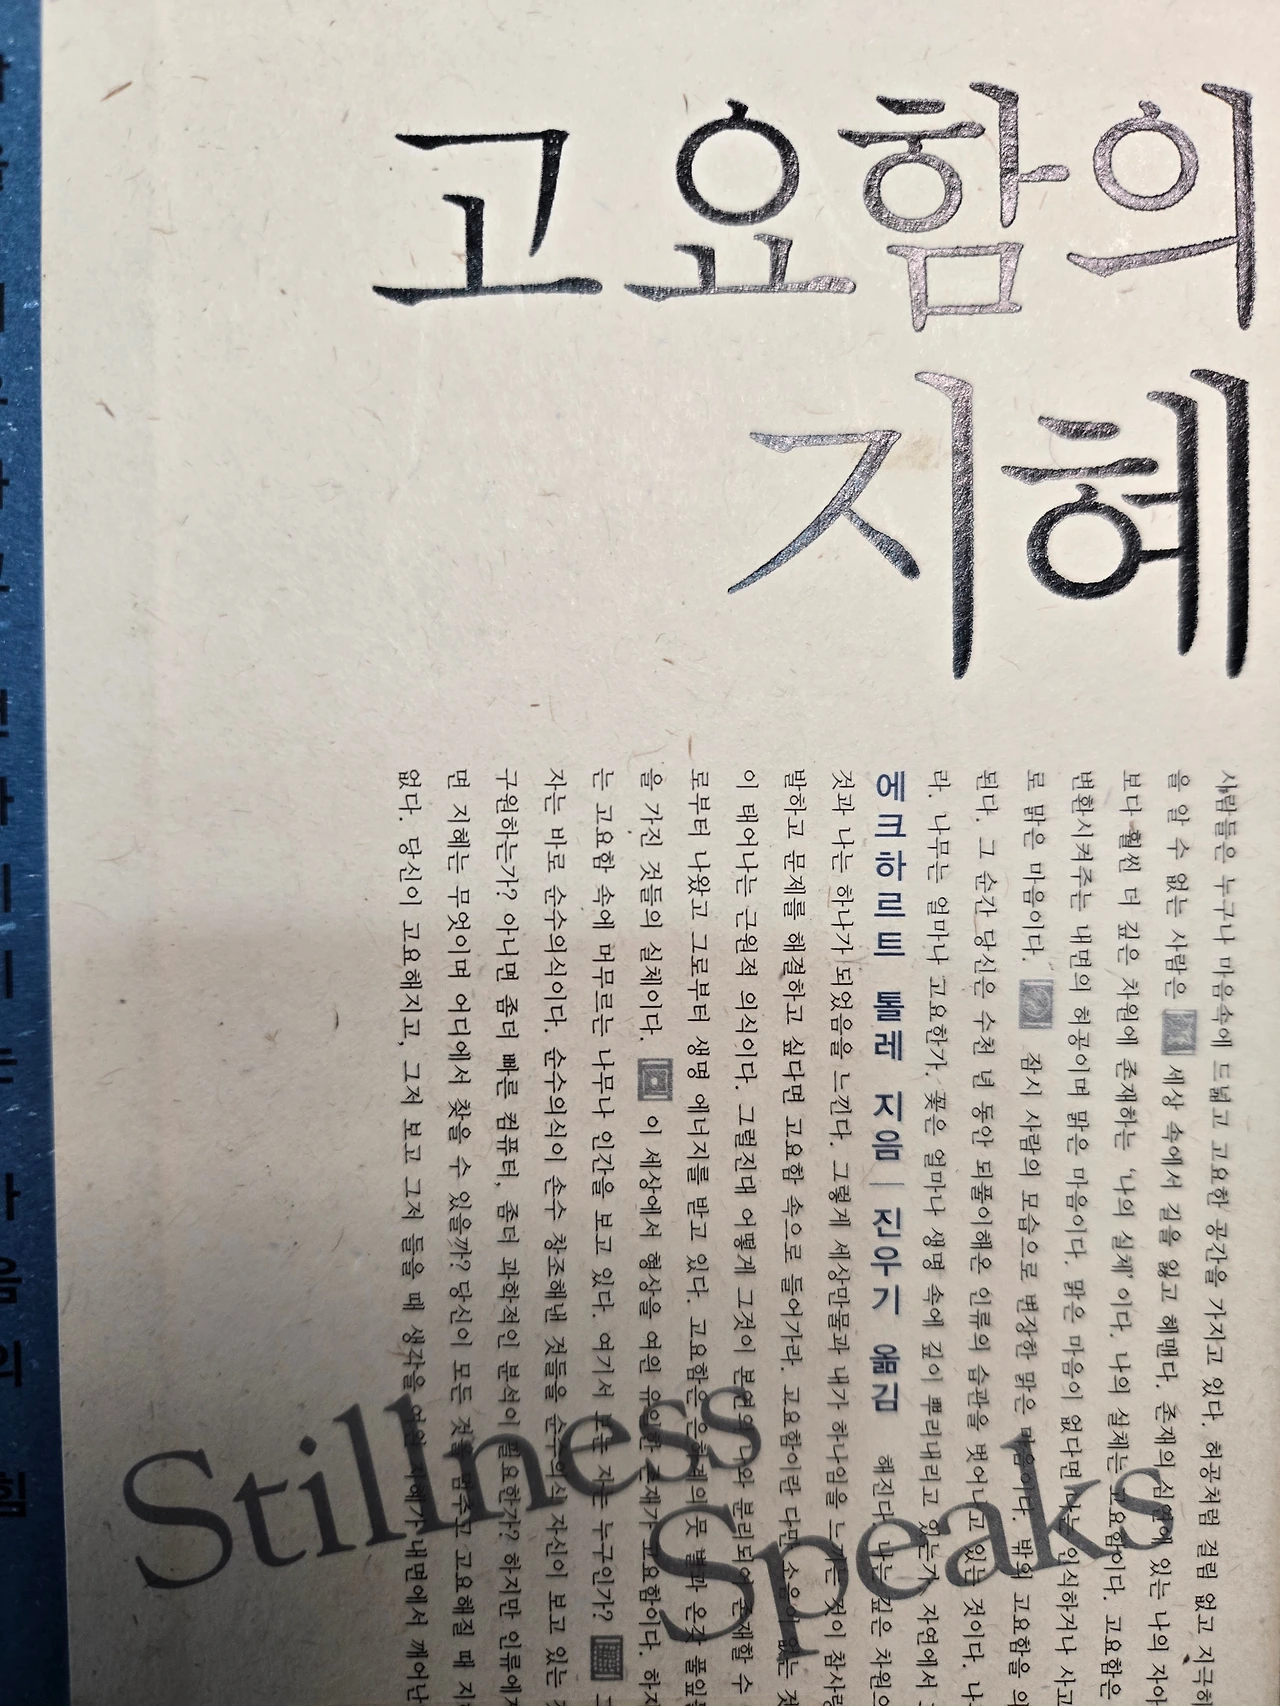 고요함의
지혜
사람들은 누구나 마음속에 드넓고 고요한 공간을 가지고 있다. 허공처럼 걸림 없고 지극히
을 알 수 없는 사람은 세상 속에서 길을 잃고 헤맨다. 존재의 심연에 있는 나의 자아
보다 훨씬 더 깊은 차원에 존재하는 '나의 실체'이다. 나의 실체는 고요함이다. 고요함은
변환시켜주는 내면의 허공이며 맑은 마음이다. 맑은 마음이 없다면 나는 인식하거나 사고
로 맑은 마음이다. 잠시 사람의 모습으로 변장한 맑은 마음이다. 밖의 고요함을 의
된다. 그 순간 당신은 수천 년 동안 되풀이해온 인류의 습관을 벗어나고 있는 것이다. 나
라. 나무는 얼마나 고요한가, 꽃은 얼마나 생명 속에 깊이 뿌리내리고 있는가. 자연에서
에크하르트 톨레 지음 | 진우기 옮김 해진다. 나는 깊은 차원의
것과 나는 하나가 되었음을 느낀다. 그렇게 세상만물과 내가 하나임을 느끼는 것이 참사랑
발하고 문제를 해결하고 싶다면 고요함 속으로 들어가라. 고요함이란 다만 소음이 없는 것
이 태어나는 근원적 의식이다. 그럴진대 어떻게 그것이 본연의 나와 분리되어 존재할 수
로부터 나왔고 그로부터 생명 에너지를 받고 있다. 고요함은 은하계의 뭇 별과 온갖 풀잎
을 가진 것들의 실체이다. 이 세상에서 형상을 여읜 유일한 존재가 고요함이다. 하지
는 고요함 속에 머무르는 나무나 인간을 보고 있다. 여기서 보는 자는 누구인가?
자는 바로 순수의식이다. 순수의식이 손수 창조해낸 것들을 순수의식 자신이 보고 있는
구원하는가? 아니면 좀더 빠른 컴퓨터, 좀더 과학적인 분석이 필요한가? 하지만 인류에게
면 지혜는 무엇이며 어디에서 찾을 수 있을까? 당신이 모든 것을 멈추고 고요해질 때 지
없다. 당신이 고요해지고, 그저 보고 그저 들을 때 생각을 여읜 지혜가 내면에서 깨어난
Stillness
Speaks